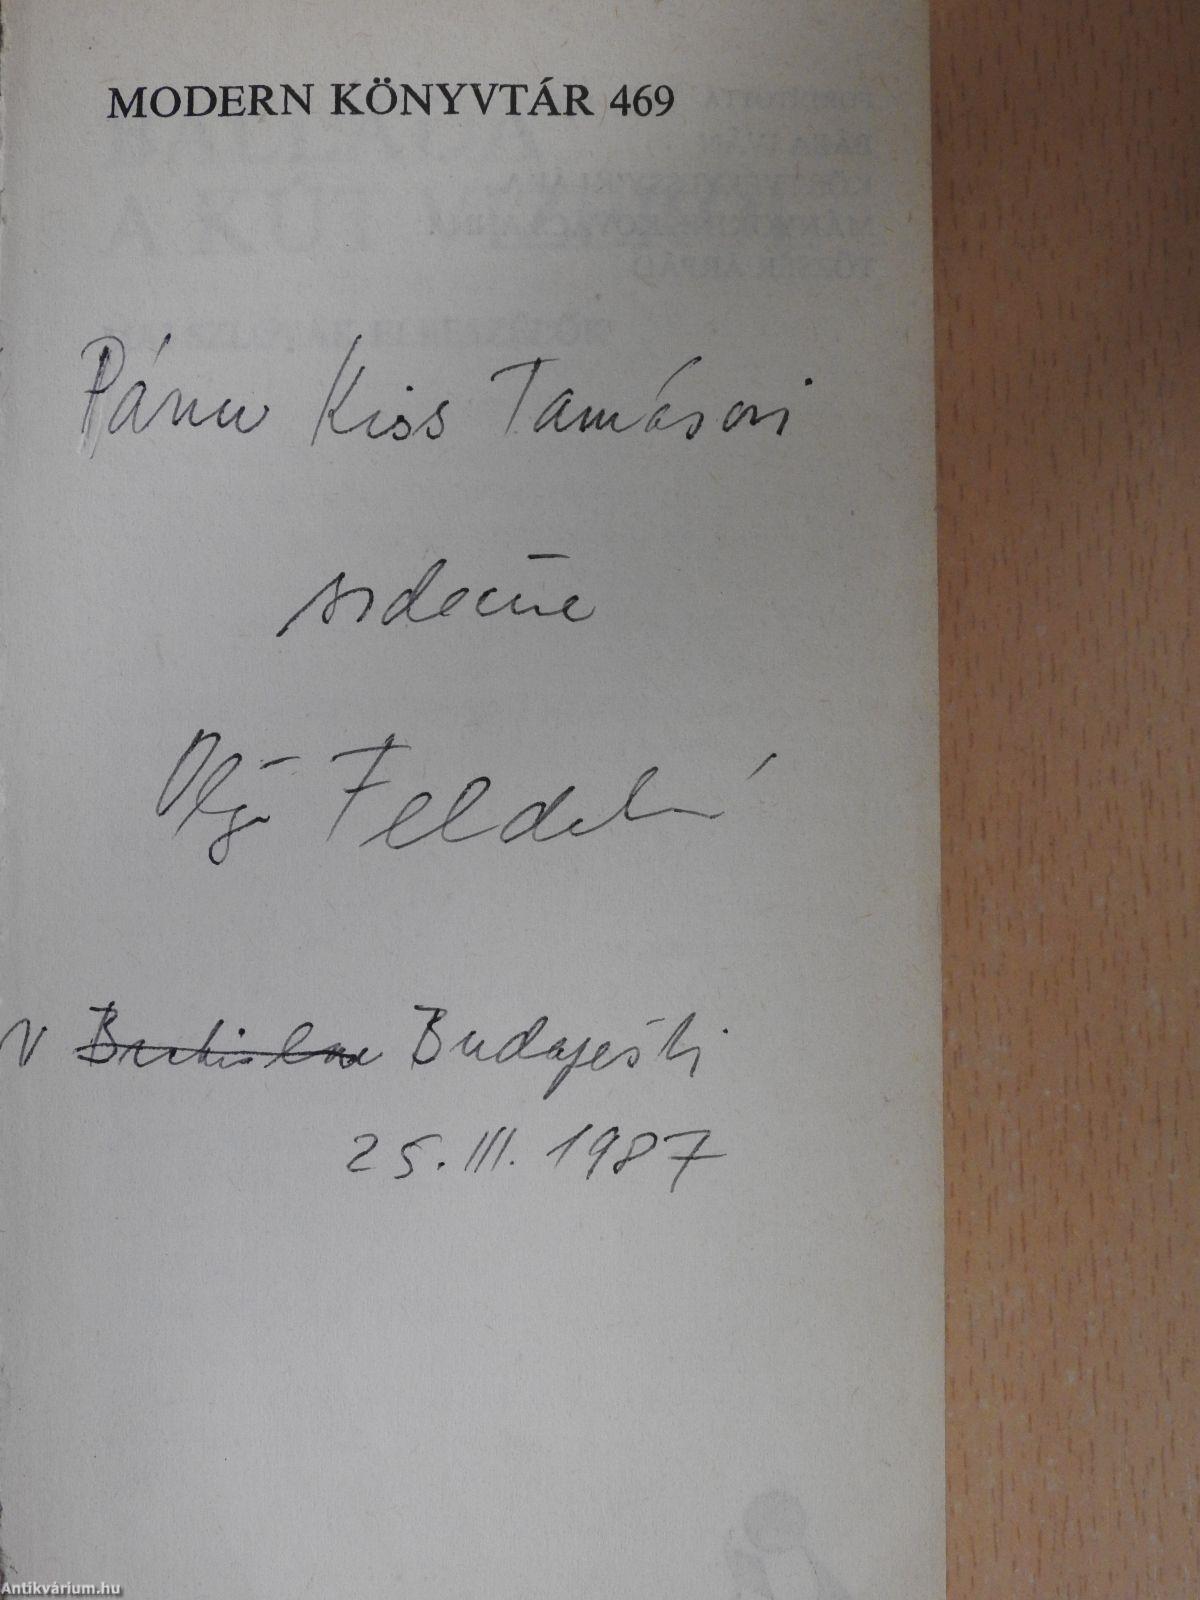 MODERN KÖNYVTÁR 469
Pánu Kiss Tamásovi
srdečne
Oľga Feldeková
v Bratislave Budapešti
25. III. 1987
Antikvárium.hu